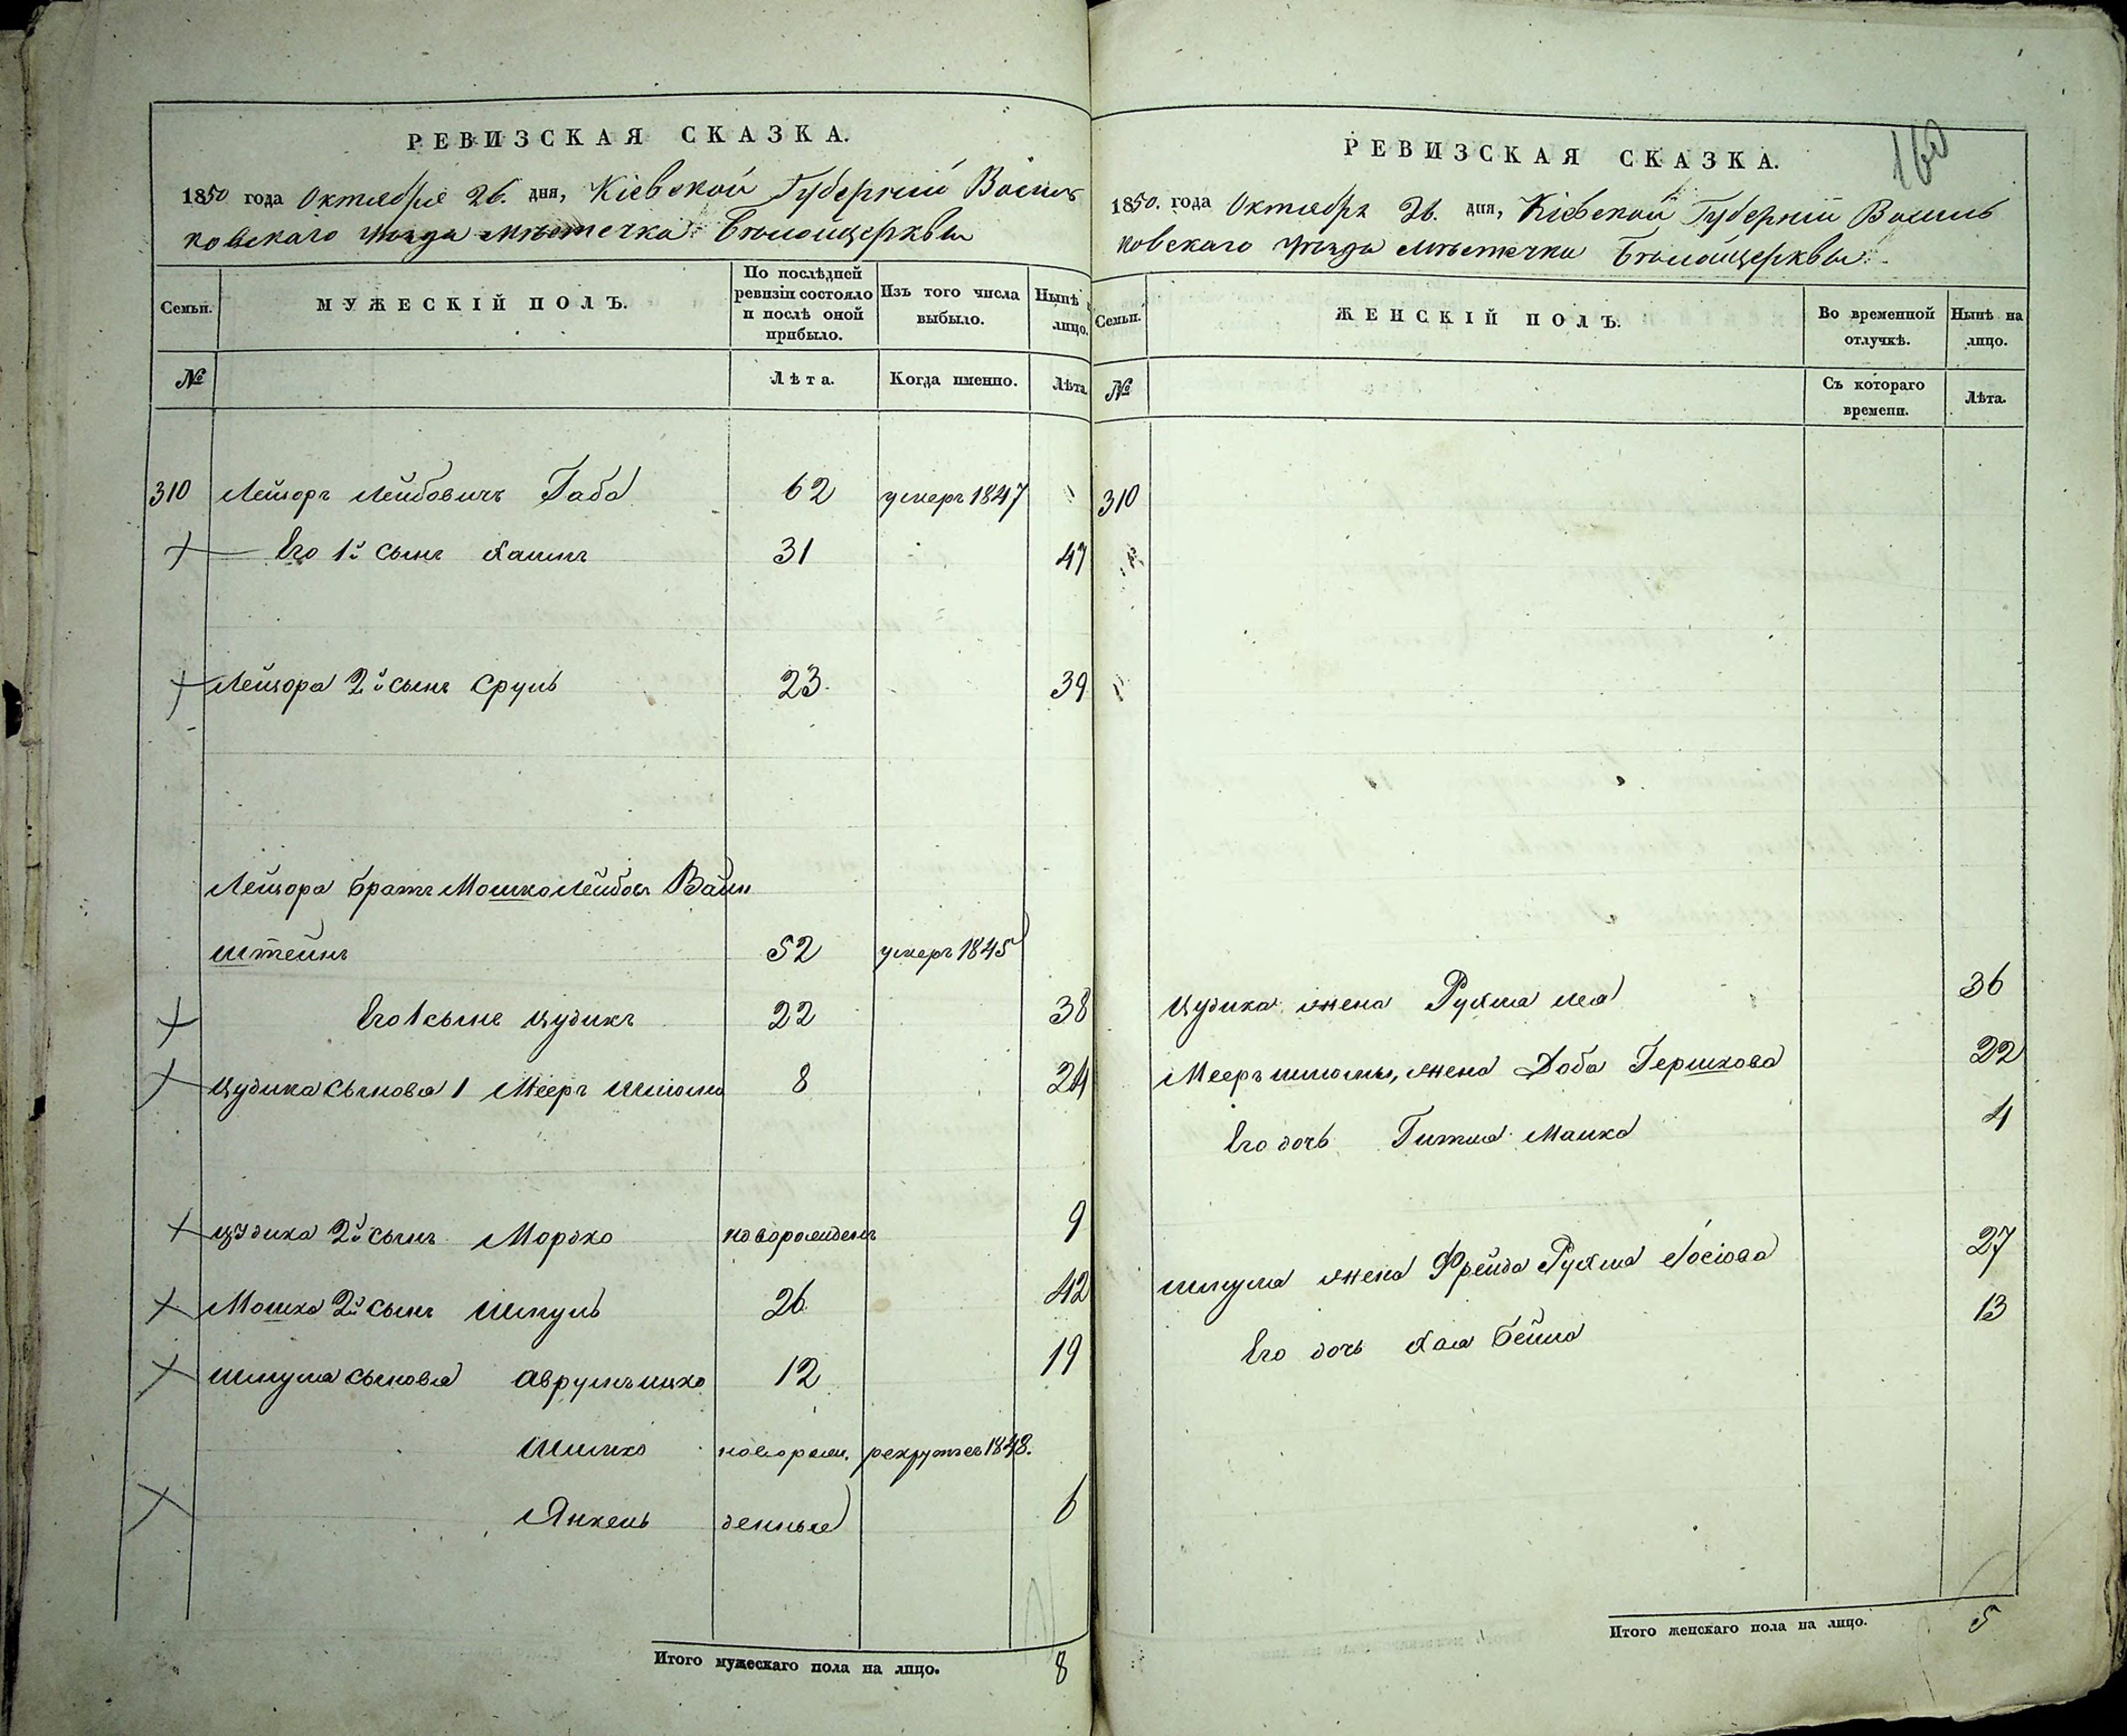 РЕВИЗСКАЯ СКАЗКА.
1850 года Октября 26. дня, Кіевской Губерніи Василь
ковскаго уѣзда мѣстечка Бѣлоицеркви
Семьи. МУЖЕСКІЙ ПОЛЪ. По послѣдней ревизіи состояло и послѣ оной прибыло. Изъ того числа выбыло. Нынѣ лицо.
№ Лѣта. Когда именно. Лѣта
310 Лейзоръ Лейбовичъ Габа 62 умеръ 1847
Его 1й сынъ Хаимъ 31 47
Лейзора 2й сынъ Сруль 23. 39
Лейзора братъ Мошко Лейбов Вайн
штейнъ 52 умеръ 1845
Его 1 сынъ Цудикъ 22 38
Цудика сыновья 1 Мееръ Шлiома 8 24
Цудика 2й сынъ Мордко новорожденъ 9
Мошка 2й сынъ Шмуль 26 42
Шмуля сыновья Аврумъ Ицко 12 19
Шимко новорож. рекрутъ въ 1848.
Янкель денные 6
Итого мужескаго пола на лицо. 8
160
РЕВИЗСКАЯ СКАЗКА.
1850. года Октября 26. дня, Кіевской Губерніи Василь
ковскаго уѣзда мѣстечка Бѣлоицеркви.
Семьи. ЖЕНСКІЙ ПОЛЪ. Во временной отлучкѣ. Нынѣ на лицо.
№ Съ котораго времени. Лѣта.
310
Цудика жена Рухля Лея 36
Мееръ Шлiомы, жена Доба Гершкова 22
Его дочь Гитля Малка 4
Шмуля жена Фрейда Рухля Іосіова 27
Его дочь Хая Бейла 13
Итого женскаго пола на лицо. 5